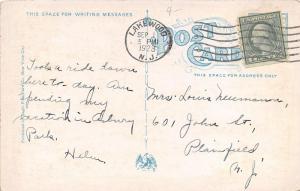 THIS SPACE FOR WRITING MESSAGES
POST CARD
THIS SPACE FOR ADDRESS ONLY
LAKEWOOD
SEP
5 PM
1923
N.J.
Took a ride down
here to-day. Am
spending my
vacation in Asbury
Park.
Helen
Mrs. Louis Neumann,
601 John St.,
Plainfield
N. J.